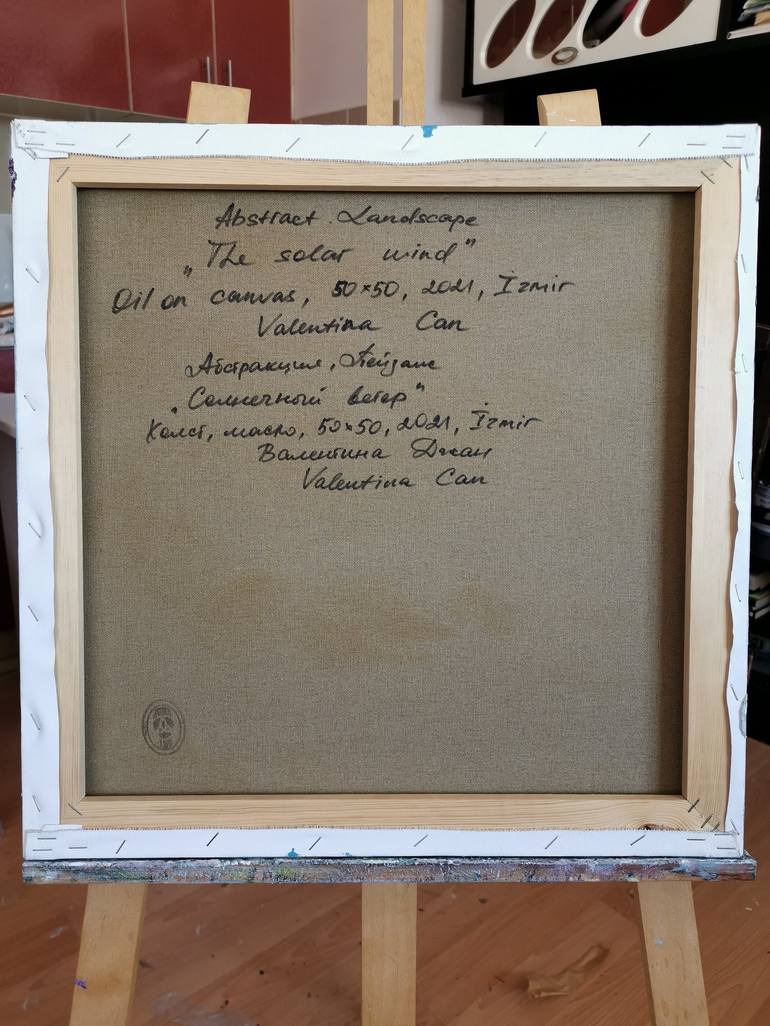 Abstract. Landscape
„The solar wind"
Oil on canvas, 50×50, 2021, İzmir
Valentina Can
Абстракция, Пейзаж
„Солнечный ветер"
Холст, масло, 50×50, 2021, İzmir
Валентина Джан
Valentina Can